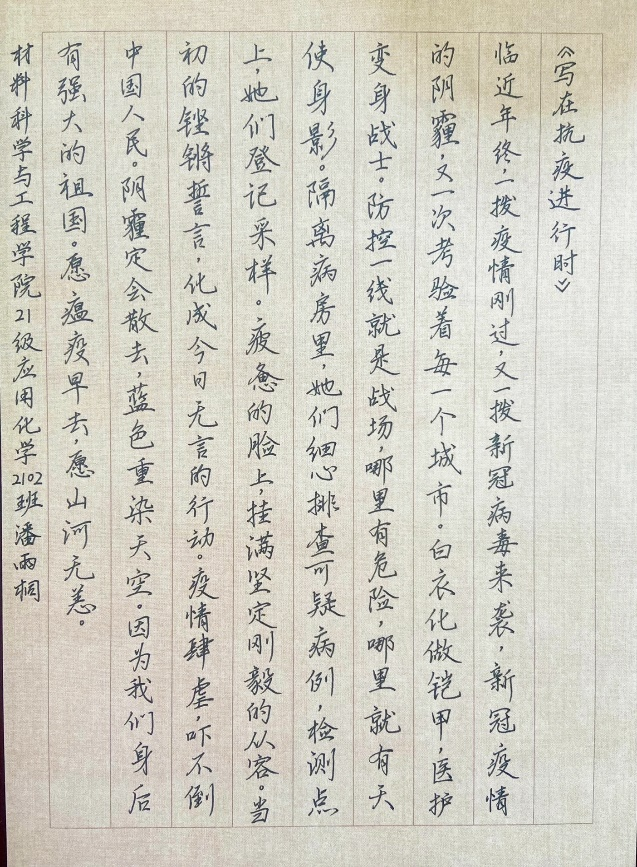 《写在抗疫进行时》
临近年终，一拨疫情刚过，又一拨新冠病毒来袭，新冠疫情
的阴霾，又一次考验着每一个城市。白衣化做铠甲，医护
变身战士。防控一线就是战场，哪里有危险，哪里就有天
使身影。隔离病房里，她们细心排查可疑病例，检测点
上，她们登记采样。疲惫的脸上，挂满坚定刚毅的从容。当
初的铿锵誓言，化成今日无言的行动。疫情肆虐，吓不倒
中国人民。阴霾定会散去，蓝色重染天空。因为我们身后
有强大的祖国。愿瘟疫早去，愿山河无恙。
材料科学与工程学院21级应用化学2102班潘雨桐